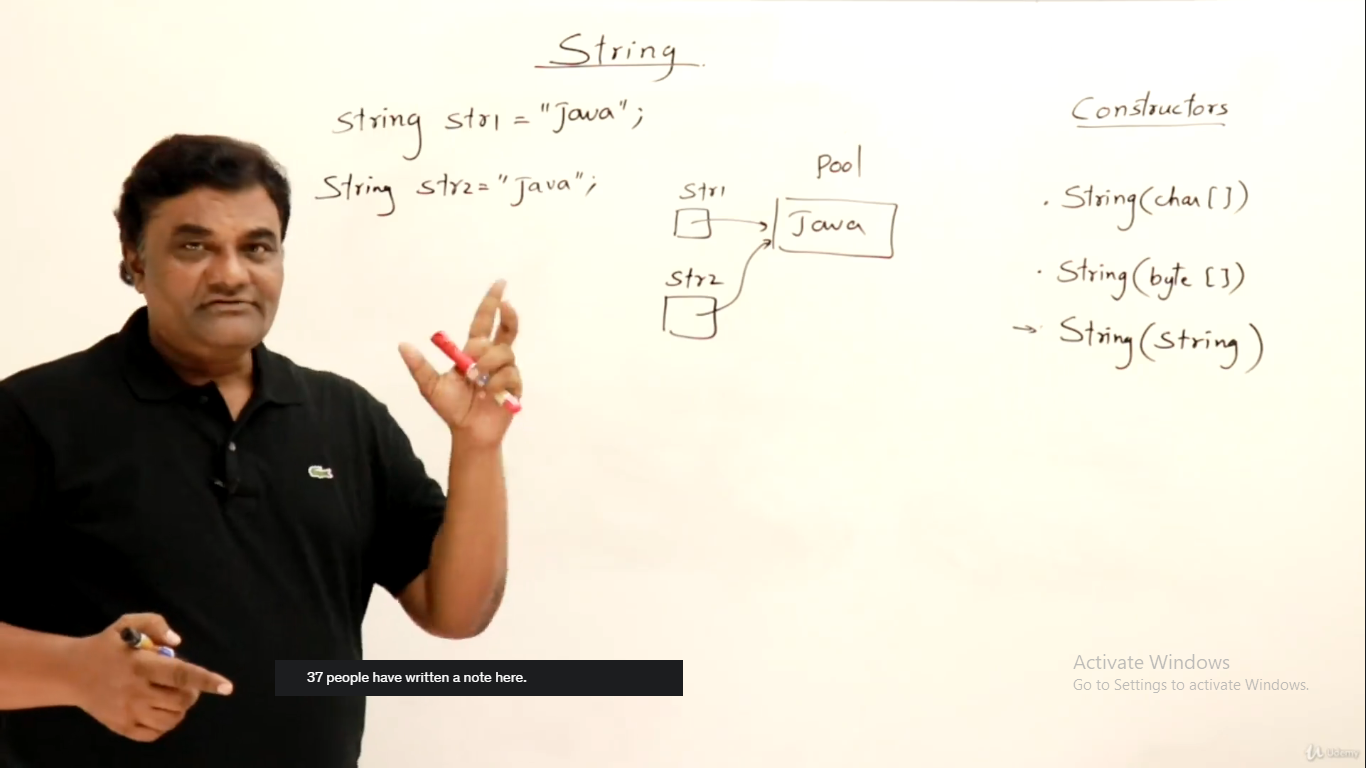 String
String str1 = "Java";
String str2 = "Java";
Pool
Str1
Java
Str2
Constructors
. String(char [])
. String(byte [])
→ String(String)
37 people have written a note here.
Activate Windows
Go to Settings to activate Windows.
Udemy